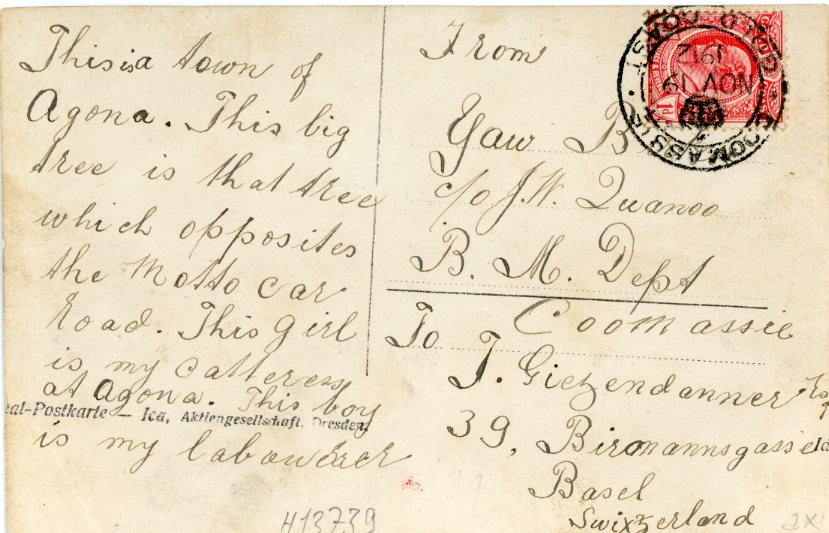 This is a town of
Agona. This big
tree is that tree
which opposites
the Motto car
Road. This Girl
is my catteress
at Agona. This boy
is my labouerer
eal-Postkarte — Ica, Aktiengesellschaft, Dresden.
H13739
From
Yaw B
c/o J. W. Quanoo
B. M. Dept
Coomassie
To
T. Gietzendanner Esq
39, Birmannsgasse
Basel
Switzerland
GOLD COAST
COOMASSIE
NOV 19
1912
1d